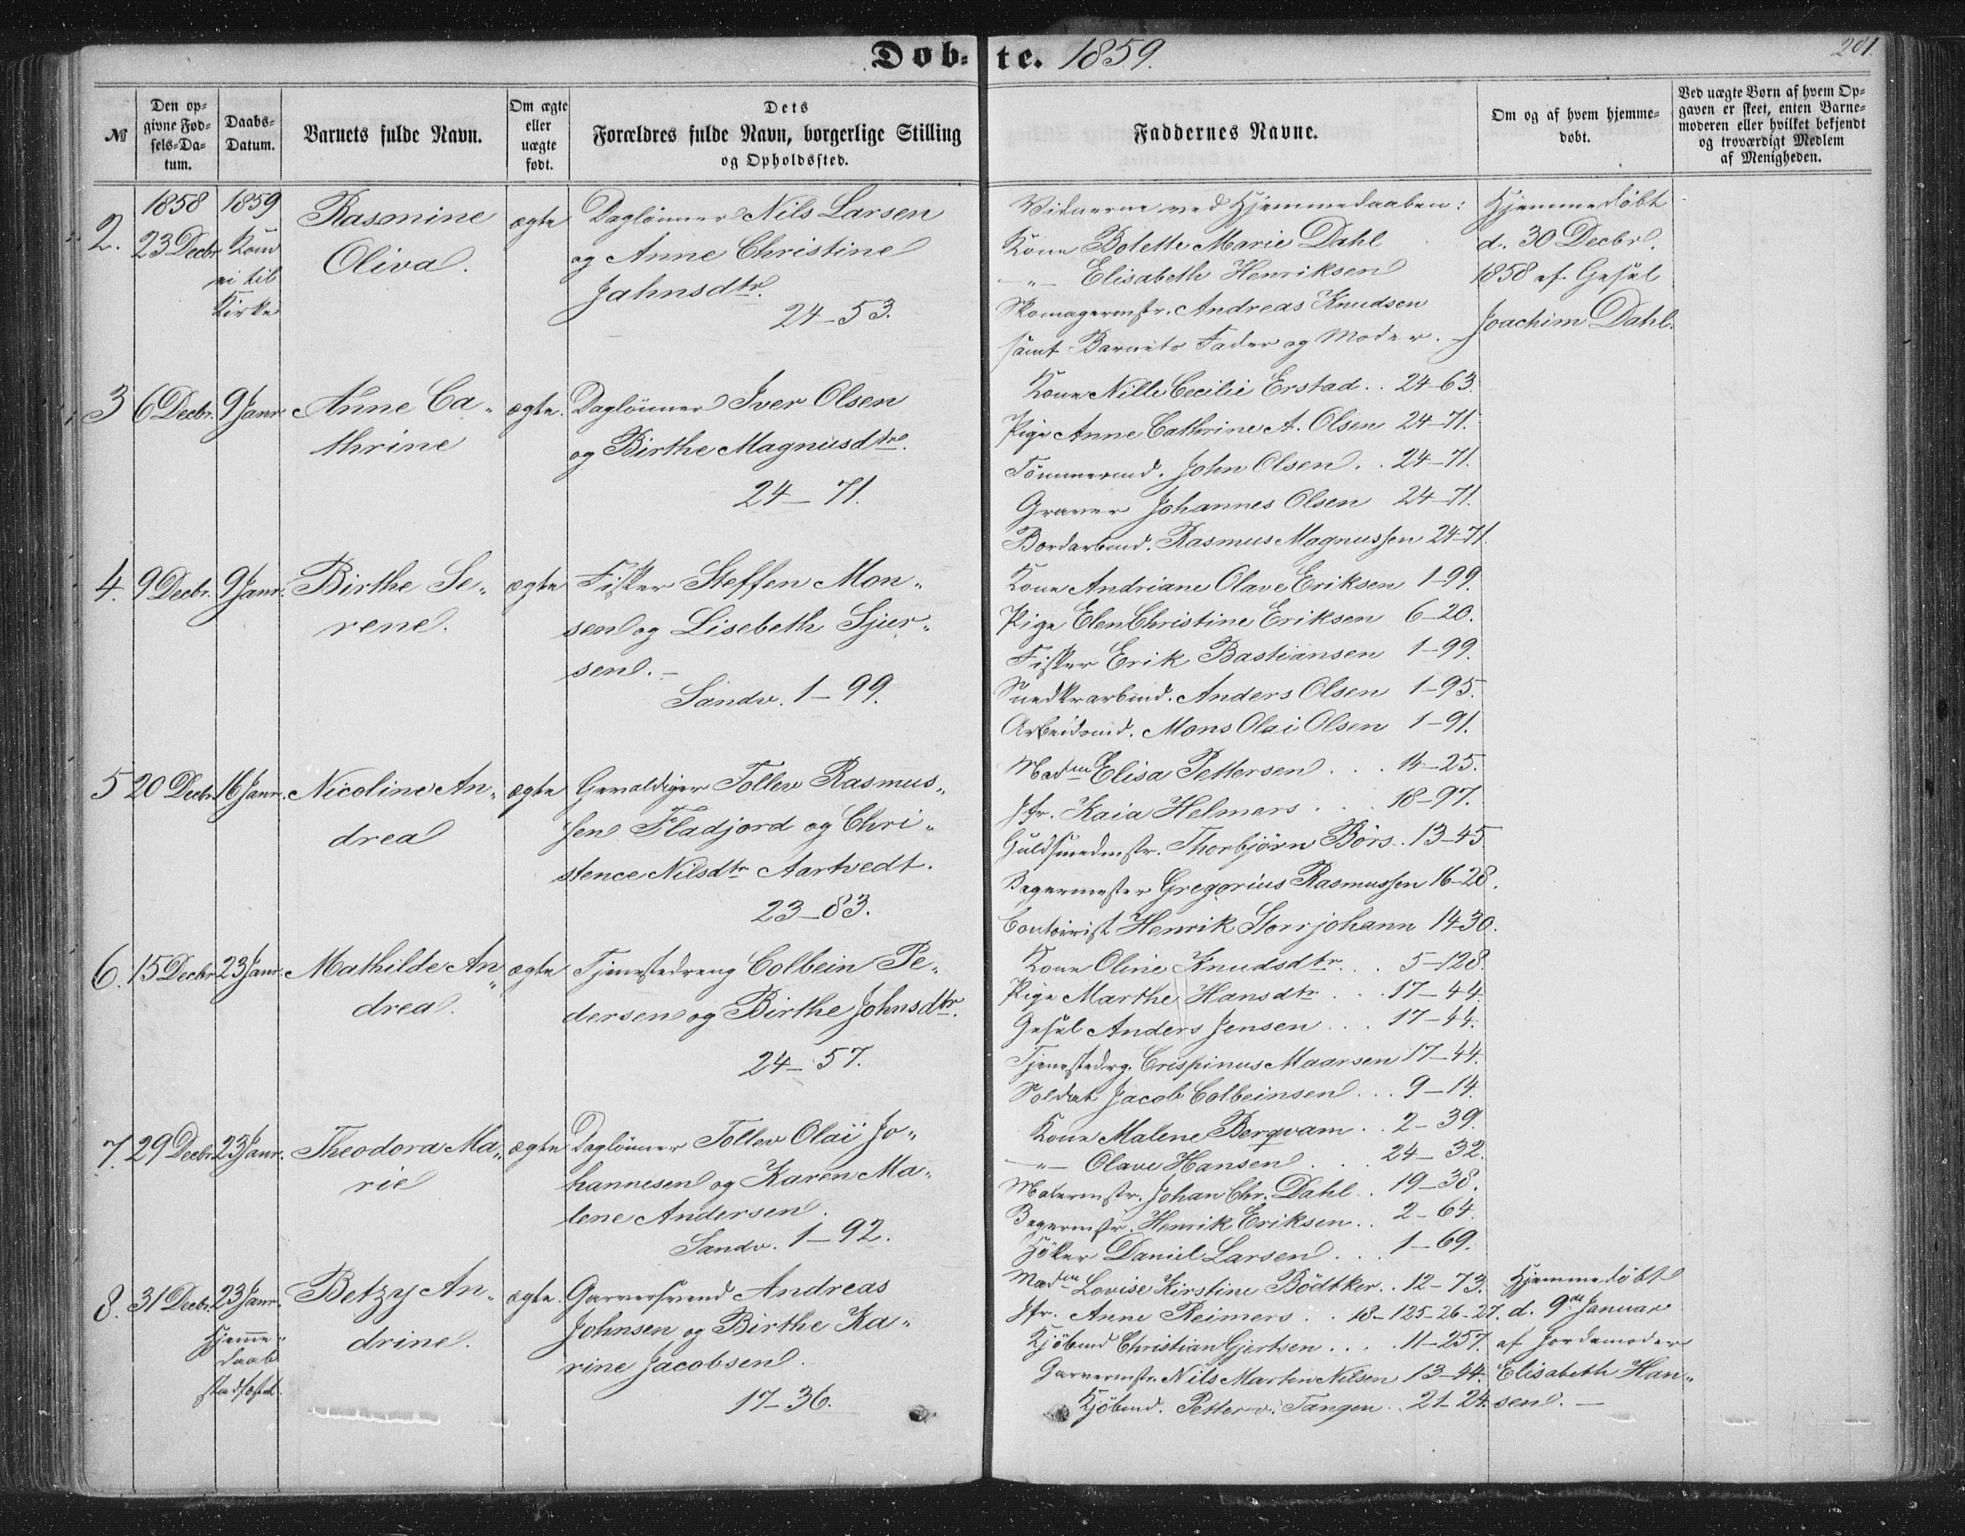 Døb-te. 1859.
201.
№
Den opgivne Fødsels-Datum.
Daabs-Datum.
Barnets fulde Navn.
Om ægte eller uægte født.
Dets
Forældres fulde Navn, borgerlige Stilling
og Opholdssted.
Faddernes Navne.
Om og af hvem hjemmedøbt.
Ved uægte Børn af hvem Opgaven er skeet, enten Barnemoderen eller hvilket bekjendt og troværdigt Medlem af Menigheden.
2.
1858
23 Decbr
1859
Kom
ei til
Kirke
Rasmine
Oliva.
ægte
Daglønner Nils Larsen
og Anne Christine
Jahnsdtr.
24-53.
Vidnerne ved Hjemmedaaben:
Kone Bolette Marie Dahl
-"- Elisabeth Henriksen
Skomagermstr. Andreas Knudsen
samt Barnets Fader og Moder.
Hjemmedøbt
d. 30 Decbr.
1858 af Gesel
Joachim Dahl.
3
6 Decbr.
9 Janr.
Anne Ca-
thrine
ægte.
Daglønner Iver Olsen
og Birthe Magnusdtr.
24-71.
Kone Nille Cecilie Erstad.. 24-63.
Pige Anne Cathrine A. Olsen 24-71.
Tømmermd. John Olsen. . 24-71.
Graver Johannes Olsen 24-71.
Bordarbmd. Rasmus Magnussen 24-71.
4.
9 Decbr.
9 Janr.
Birthe Se-
rene.
ægte
Fisker Steffen Mon-
sen og Lisebeth Sjur-
sen. -
Sandv. 1-99.
Kone Andriane Olave Eriksen 1-99.
Pige Elen Christine Eriksen 6-20.
Fisker Erik Bastiansen 1-99.
Snedkrarbmd. Anders Olsen 1-95.
Arbeidsmd. Mons Olai Olsen 1-91.
5
20 Decbr.
16 Janr.
Nicoline An-
drea
ægte
Gevaldiger Tollev Rasmus-
sen Fladjord og Chri-
stence Nilsdtr Aartvedt.
23-83.
Madm Elisa Pettersen . . . 14-25.
Jfr. Kaia Helmers . . . 18-97.
Guldsmedmstr. Thorbjørn Børs.. 13-45
Bagermester Gregorius Rasmussen 16-28.
Contoirist Henrik Storrjohann 14-30.
6.
15 Decbr
23 Janr.
Mathilde An-
drea.
ægte
Tjenestedreng Colbein Pe-
dersen og Birthe Johnsdtr.
24-57.
Kone Oline Knudsdtr. . . 5-128.
Pige Marthe Hansdtr . . . 17-44.
Gesel Anders Jensen . . . 17-44.
Tjenestedrg. Crispinus Maarsen 17-44.
Soldat Jacob Colbeinsen . . . 9-14.
7.
29 Decbr.
23 Janr.
Theodora Ma-
rie
ægte
Daglønner Tollev Olaï Jo-
hannesen og Karen Ma-
lene Andersen.
Sandv. 1-92.
Kone Malene Bergvam . . 2-39.
-"- Olave Hansen . . . 24-32.
Malermstr. Johan Chr. Dahl . . 19-38.
Bagermstr. Henrik Eriksen . . 2-64.
Høker Daniel Larsen . . . 1-69.
8.
31 Decbr.
23 Janr.
Hjemme-
daab
stadfæstet.
Betzy An-
drine.
ægte.
Garversvend Andreas
Johnsen og Birthe Ka-
rine Jacobsen.
17-36.
Madm Lovise Kirstine Bödtker. . 12-73.
Jfr. Anne Reimers . . 18-125-26-27.
Kjøbmd Christian Gjertsen . . . . 11-257.
Garvermstr. Nils Martin Nilsen 13-44.
Kjøbmd. Petter v. Tangen . . 21-24.
Hjemmedøbt
d. 9de Januar
af Jordemoder
Elisabeth Han-
sen. -